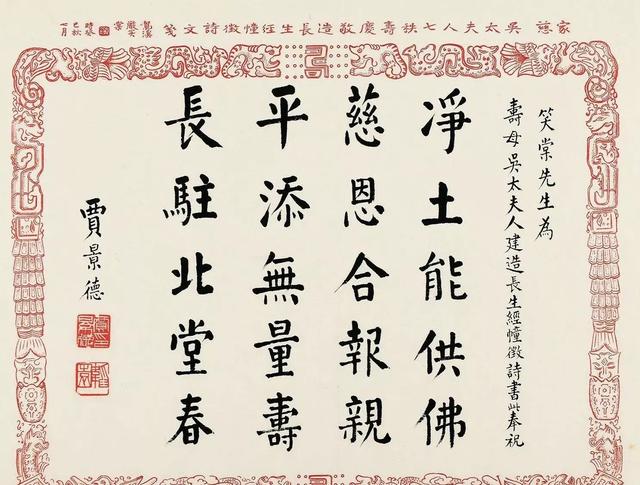 家慈吳太夫人七秩壽慶敬造長生經幢徵詩文箋
嚴笑棠
時癸巳秋七月
笑棠先生為
壽母吳太夫人建造長生經幢徵詩書此奉祝
凈土能供佛
慈恩合報親
平添無量壽
長駐北堂春
賈景德